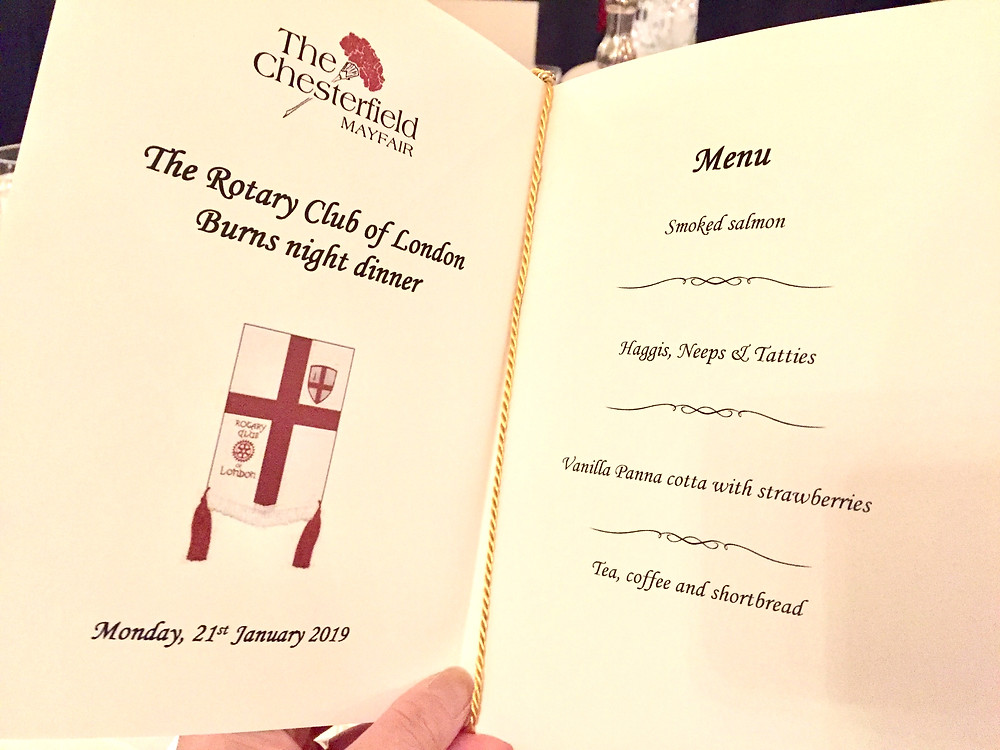 The
Chesterfield
MAYFAIR
The Rotary Club of London
Burns night dinner
ROTARY
CLUB
OF
LONDON
Monday, 21st January 2019
Menu
Smoked salmon
Haggis, Neeps & Tatties
Vanilla Panna cotta with strawberries
Tea, coffee and shortbread